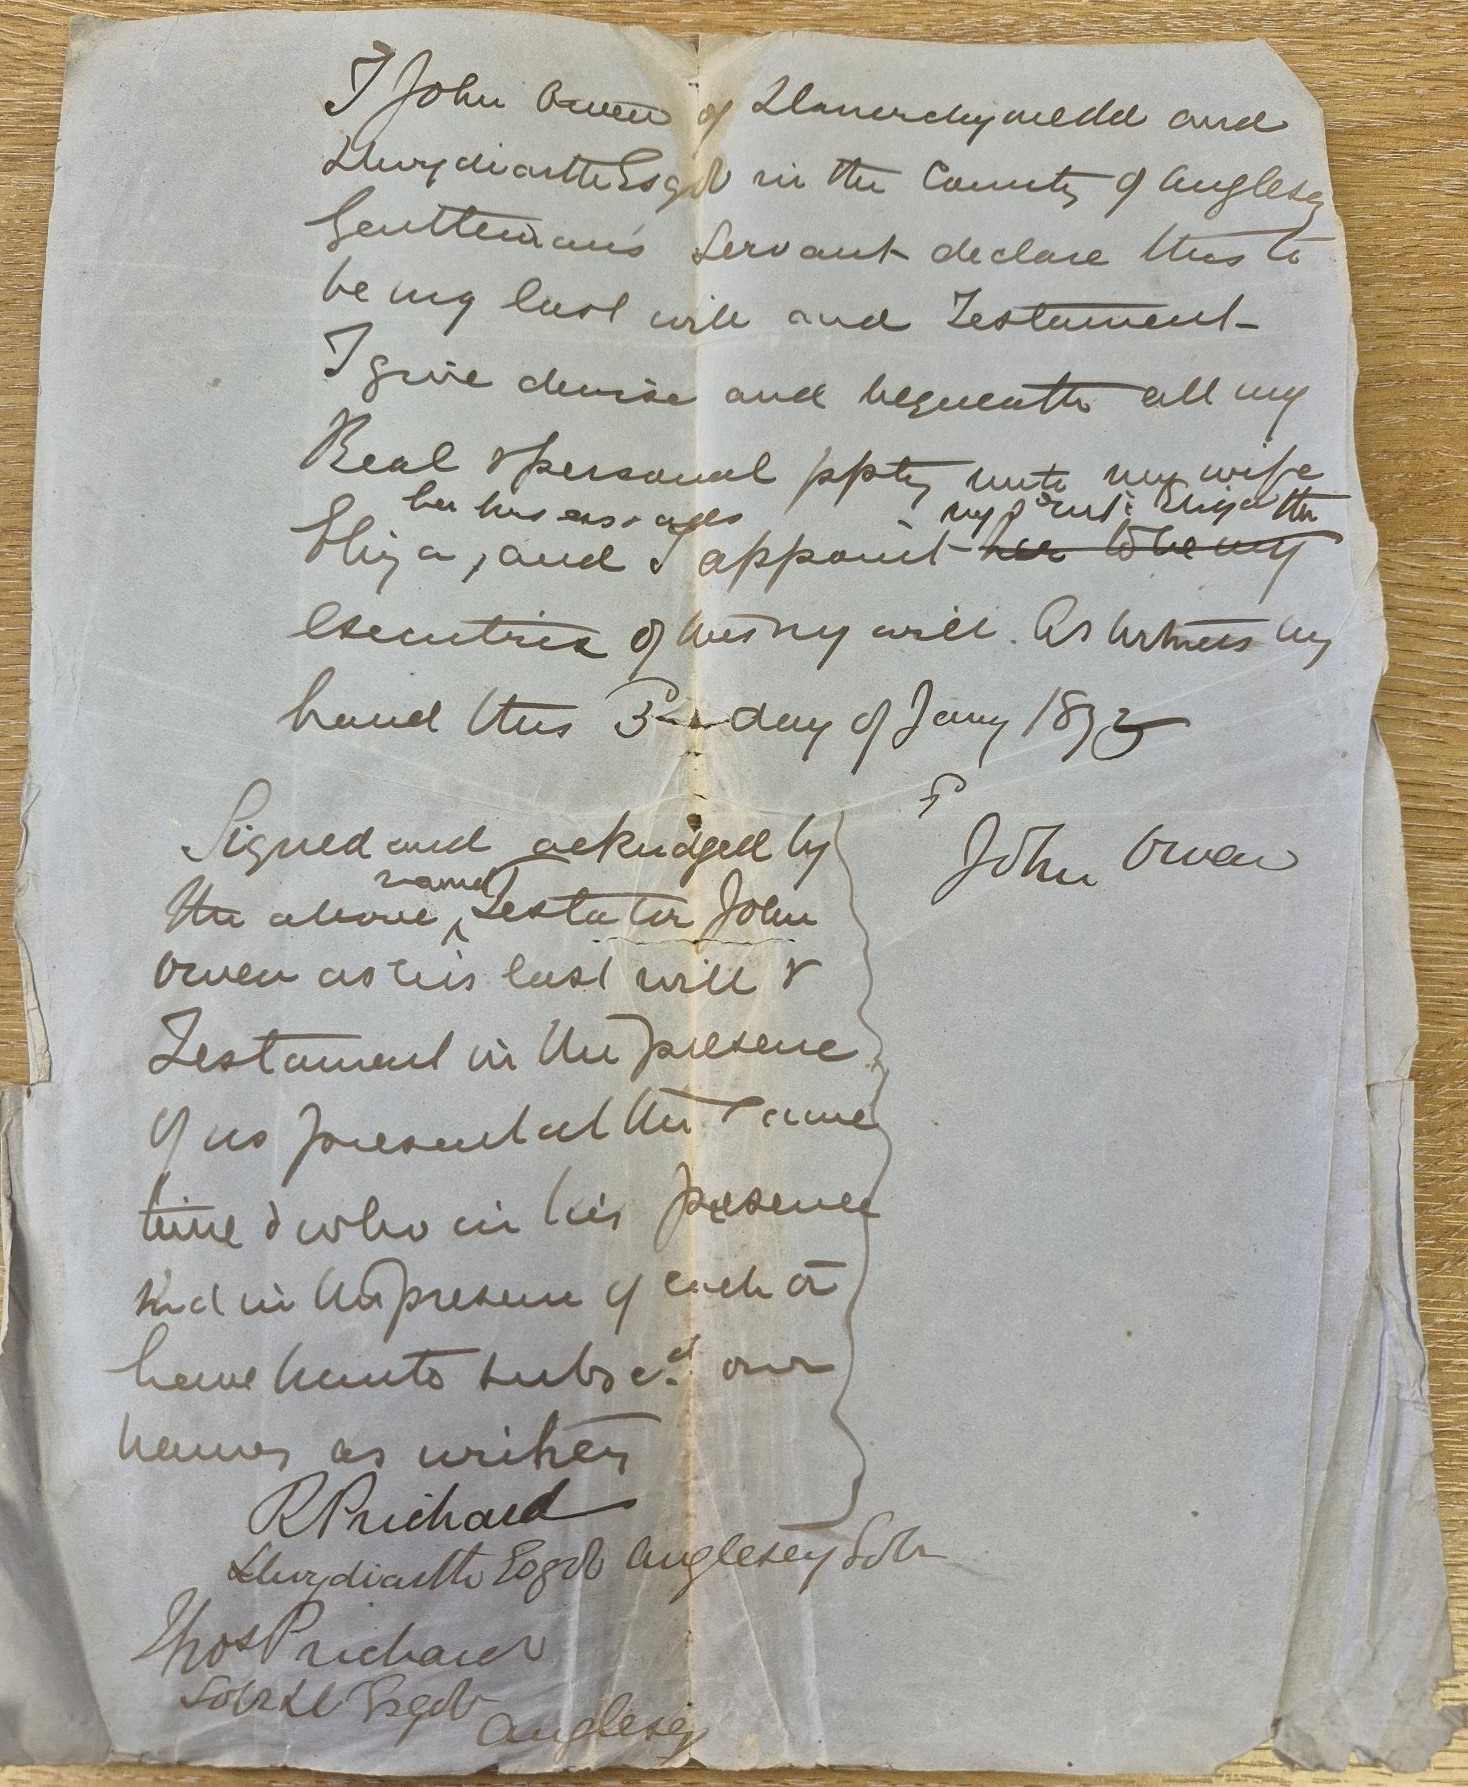 I John Owen of Llanerchymedd and
Llwydiarth Esgob in the County of Anglesey
Gentleman's Servant declare this to
be my last will and Testament
I give devise and bequeath all my
Real & personal ppty unto my wife
her hrs exs & ads my sd wife Eliza the
Eliza, and I appoint her to be my
executrix of this my will. As witness my
hand this 3rd day of Jany 1893
John Owen
Signed and ackndged by
the above named Testator John
Owen as his last will &
Testament in the presence
of us present at the same
time & who in his presence
and in the presence of each or
have hereunto subscd our
names as witness
R Prichard
Llwydiarth Esgob Anglesey Solr
Thos Prichard
Solr Ll Esgob
Anglesey